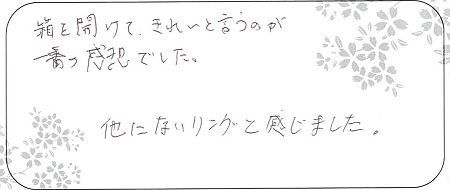 箱を開けて、きれいと言うのが
一番の感想でした。
他にないリングと感じました。